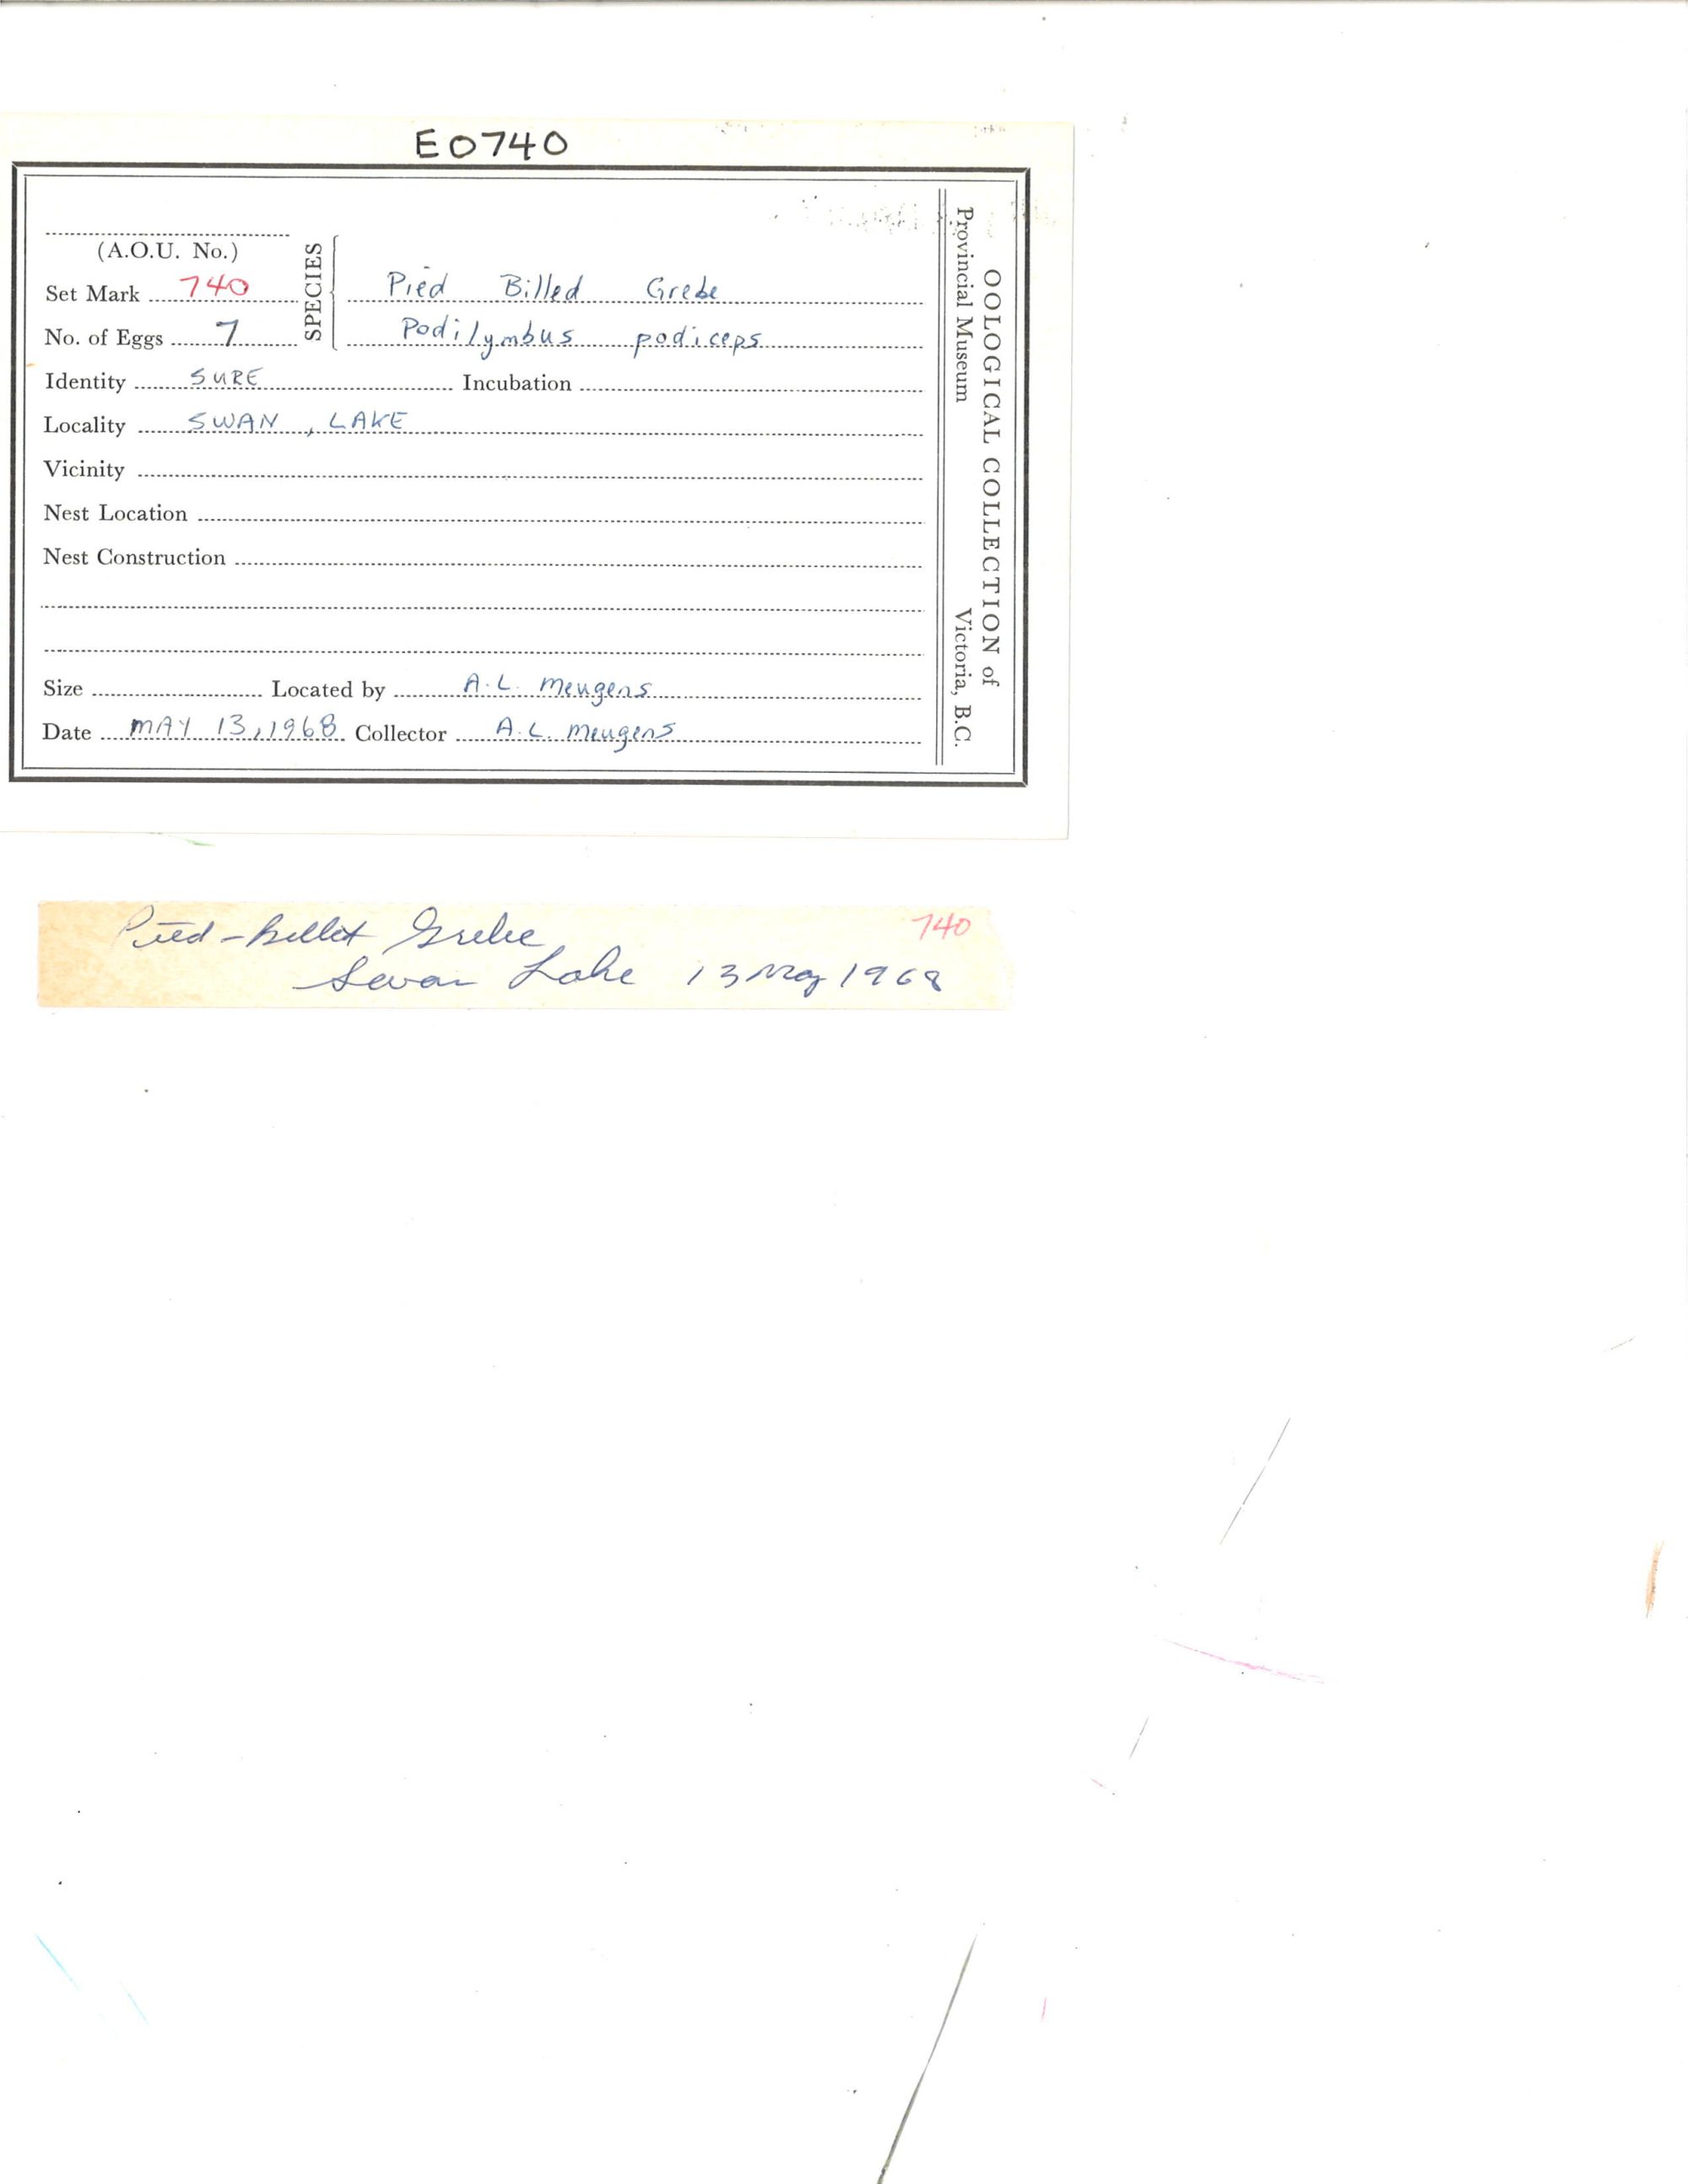 E0740
(A.O.U. No.)
Set Mark 740
No. of Eggs 7
SPECIES
Pied Billed Grebe
Podilymbus podiceps
Identity SURE Incubation
Locality SWAN, LAKE
Vicinity
Nest Location
Nest Construction
Size Located by A.L. Meugens
Date MAY 13, 1968 Collector A.L. Meugens
OOLOGICAL COLLECTION of
Provincial Museum Victoria, B.C.
Pied-billet Grebe 740
Swan Lake 13 May 1968